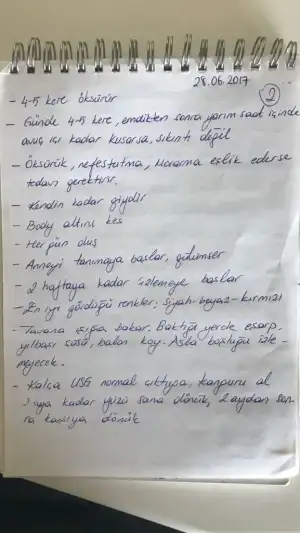 28.06.2017
2
- 4-5 kere öksürür
- Günde 4-5 kere, emdikten sonra yarım saat içinde
avuç içi kadar kusarsa, sıkıntı değil
- Öksürük, nefes tutma, morarma eşlik ederse
tedavi gerektirir.
- Kendin kadar giydir
- Body altını kes
- Her gün duş
- Anneyi tanımaya başlar, gülümser
- 2 haftaya kadar izlemeye başlar
- En iyi gördüğü renkler; siyah-beyaz-kırmızı
- Tavana ışığa bakar. Baktığı yerde eşarp,
yılbaşı süsü, balon koy. Asla boşluğu izle-
meyecek.
- Kalça USG normal çıktıysa, kanguru al
3 aya kadar yüzü sana dönük, 2 aydan son-
ra karşıya dönük